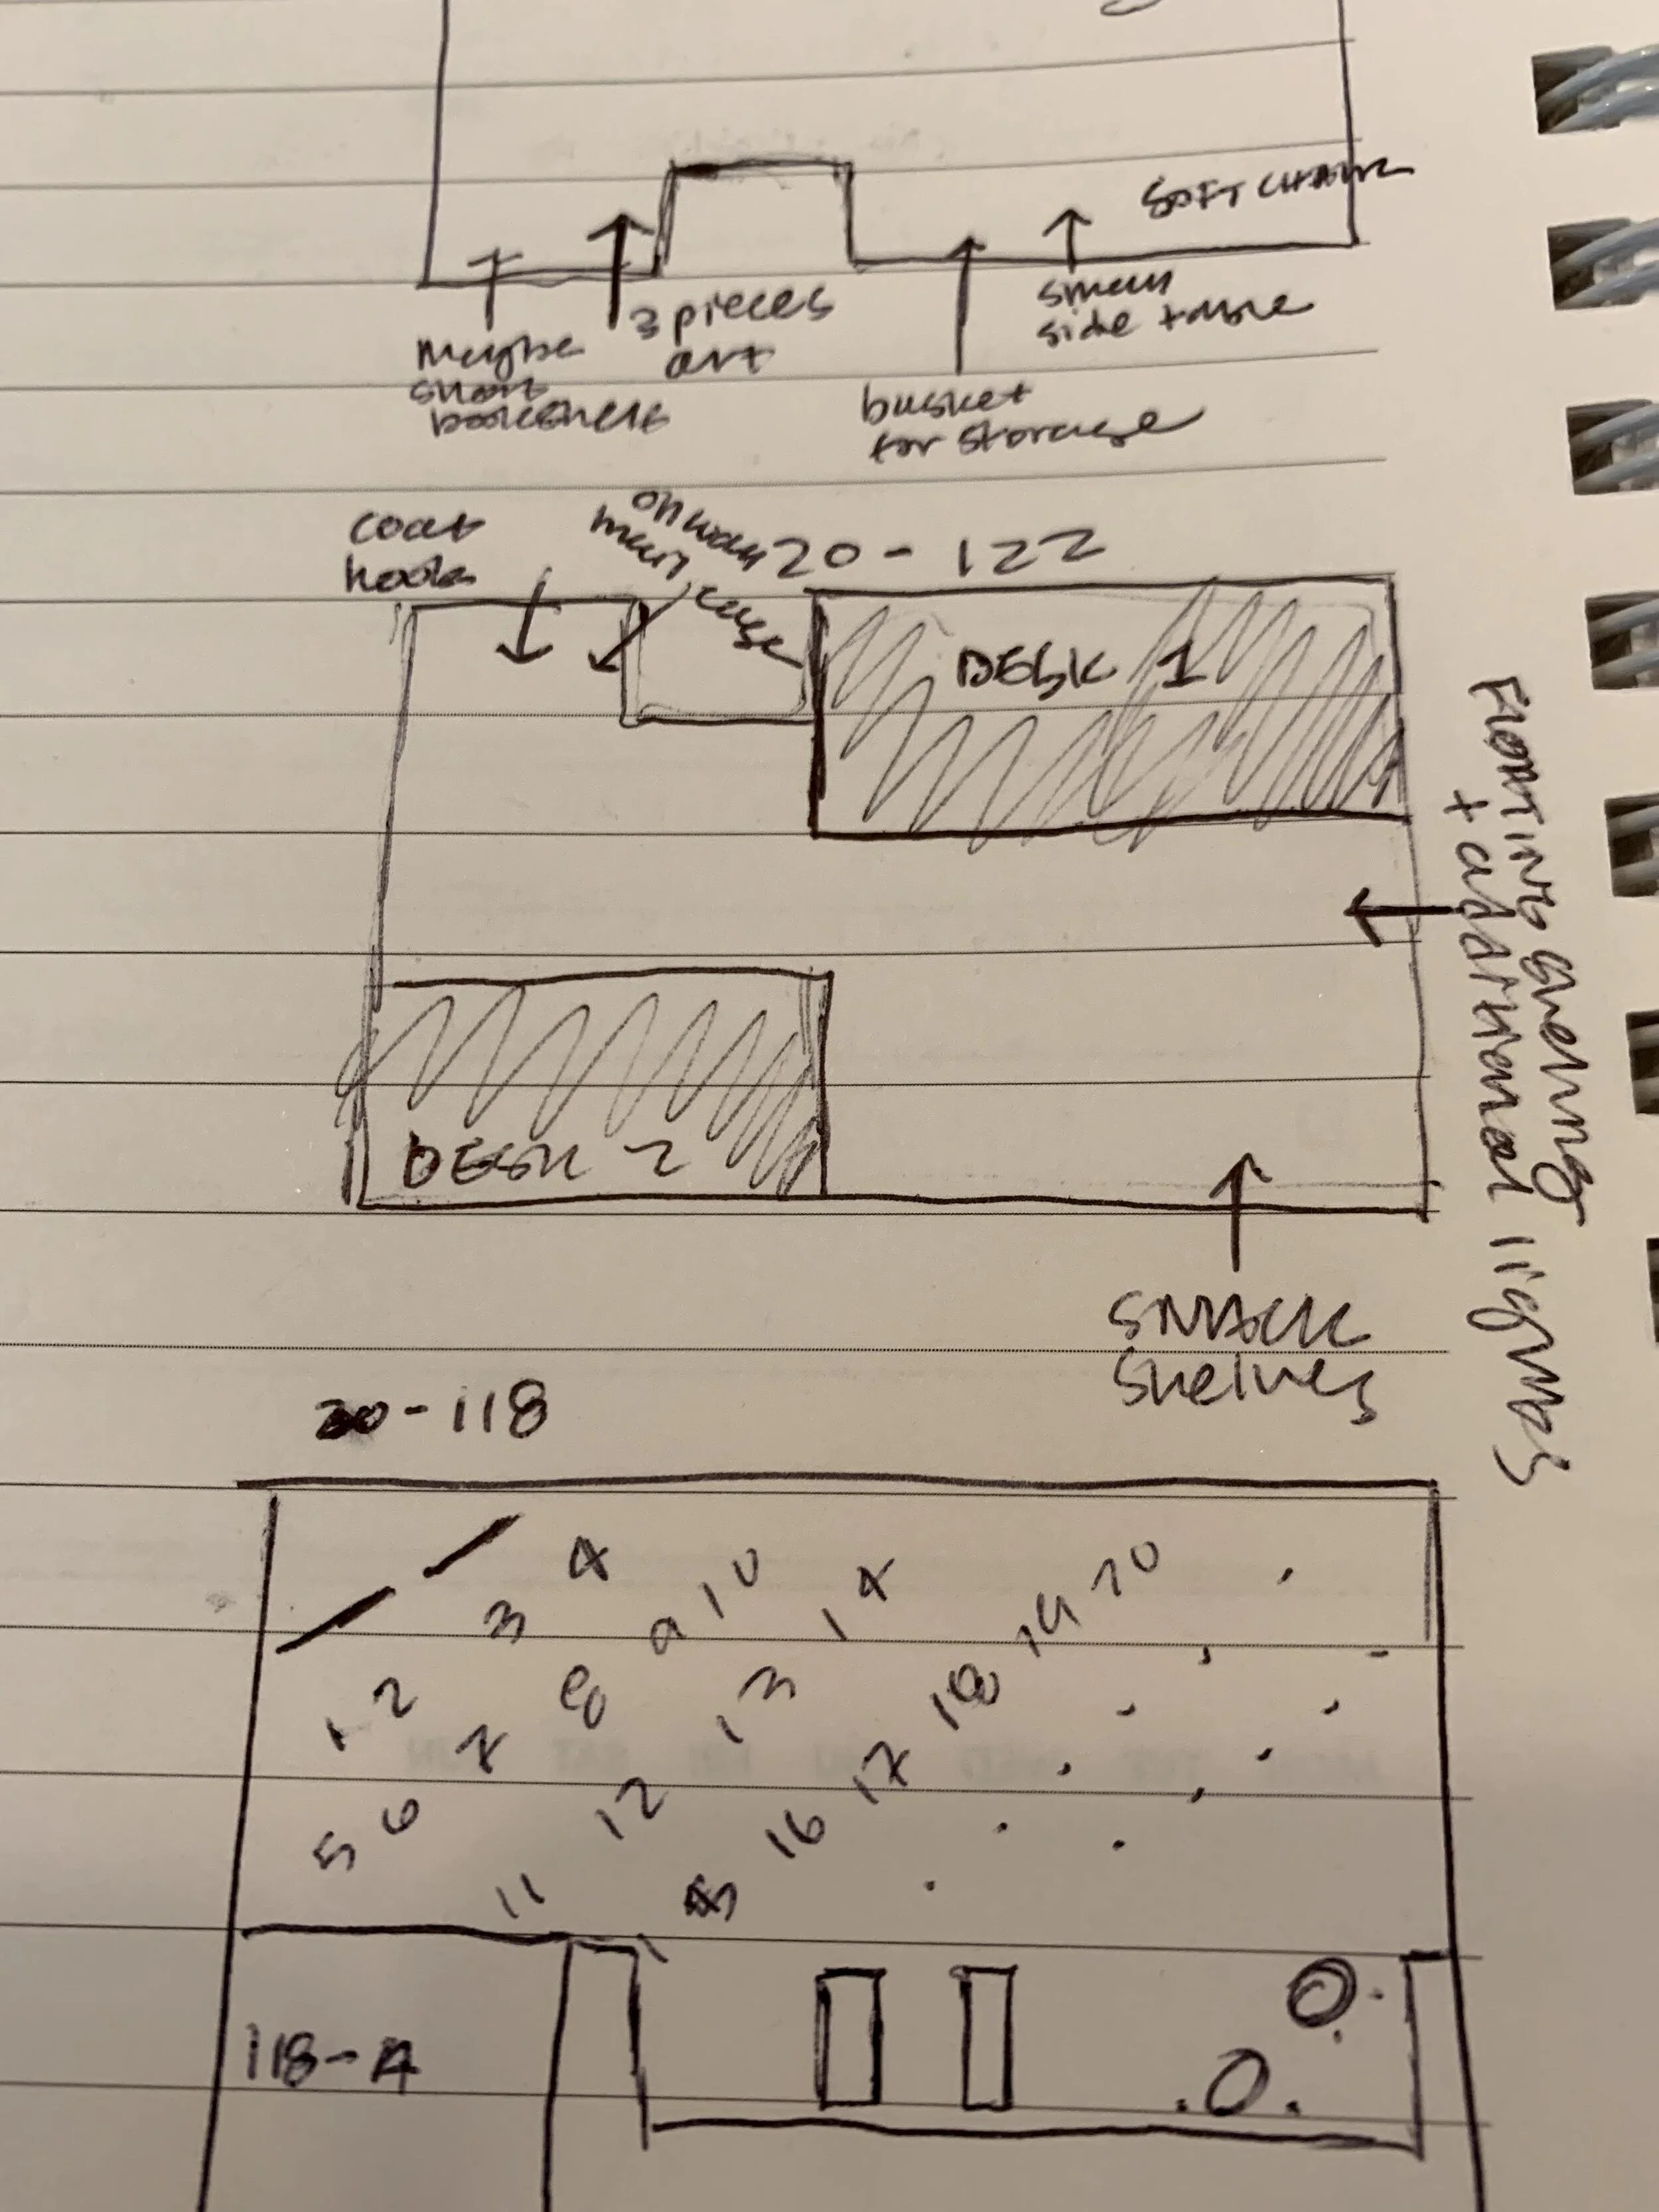 SOFT CHAIR
small
side table
3 pieces
art
Maybe
short
bookshelf
basket
for storage
coat
hooks
on wall
20-122
DESK 1
FLOATING Shelving
+ additional lights
DESK 2
SNACK
Shelves
20-118
4
10
14
20
3
9
19
2
8
13
18
1
7
12
17
6
16
5
11
15
118-A